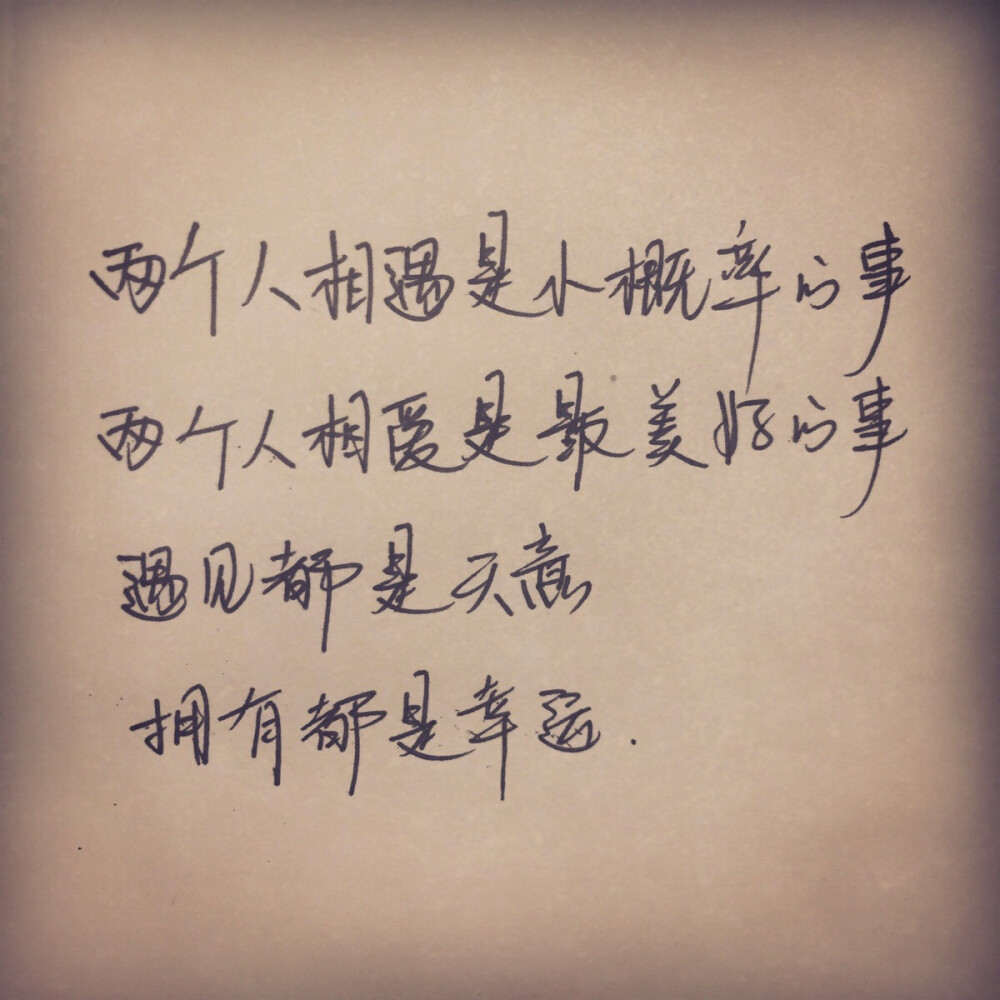 两个人相遇是小概率的事
两个人相爱是最美好的事
遇见都是天意
拥有都是幸运.